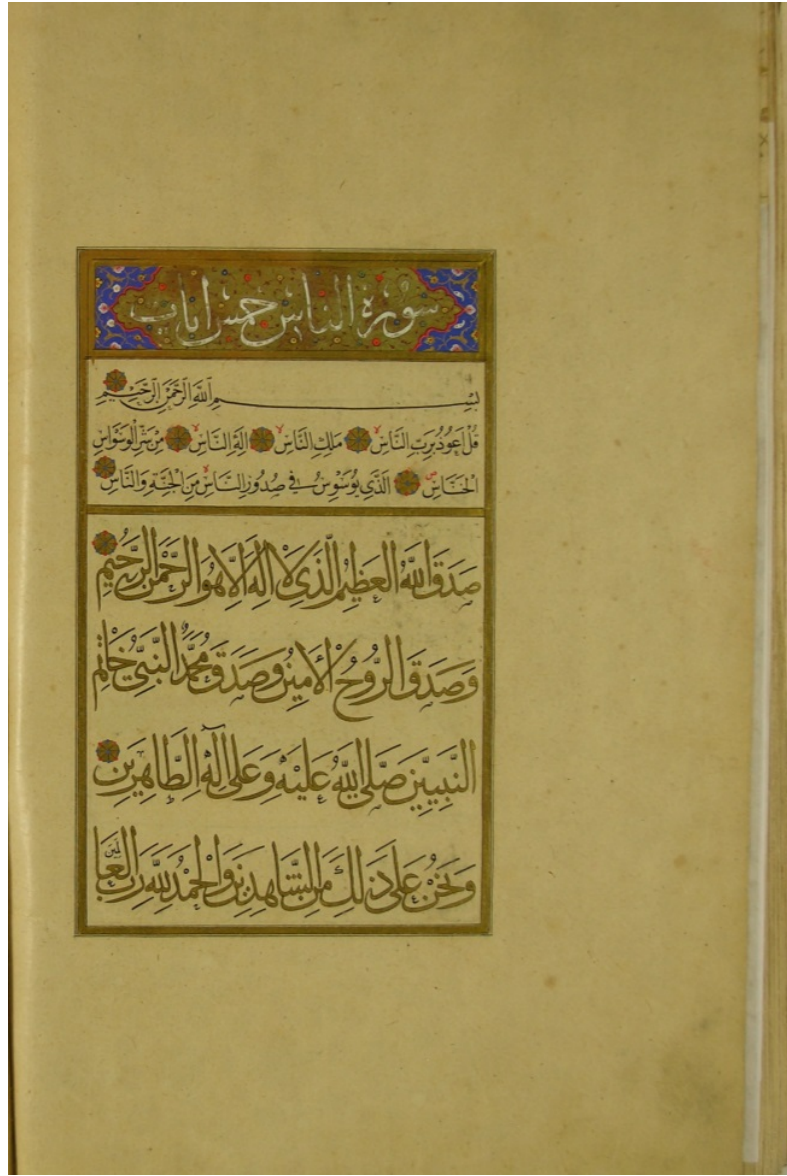 سورة الناس خمس ايات
بِسْمِ اللَّهِ الرَّحْمَنِ الرَّحِيمِ
قُلْ اَعُوذُ بِرَبِّ النَّاسِ مَلِكِ النَّاسِ اِلَهِ النَّاسِ مِنْ شَرِّ الْوَسْوَاسِ
الْخَنَّاسِ الَّذِي يُوَسْوِسُ فِي صُدُورِ النَّاسِ مِنَ الْجِنَّةِ وَالنَّاسِ
صَدَقَ اللَّهُ الْعَظِيمُ الَّذِي لَا اِلَهَ اِلَّا هُوَ الرَّحْمَنُ الرَّحِيمُ
وَصَدَقَ الرُّوحُ الْأَمِينُ وَصَدَقَ مُحَمَّدٌ النَّبِيُّ خَاتِمُ
النَّبِيِّينَ صَلَّى اللَّهُ عَلَيْهِ وَعَلَى آلِهِ الطَّاهِرِينَ
وَنَحْنُ عَلَى ذَلِكَ مِنَ الشَّاهِدِينَ وَالْحَمْدُ لِلَّهِ رَبِّ الْعَالَمِينَ